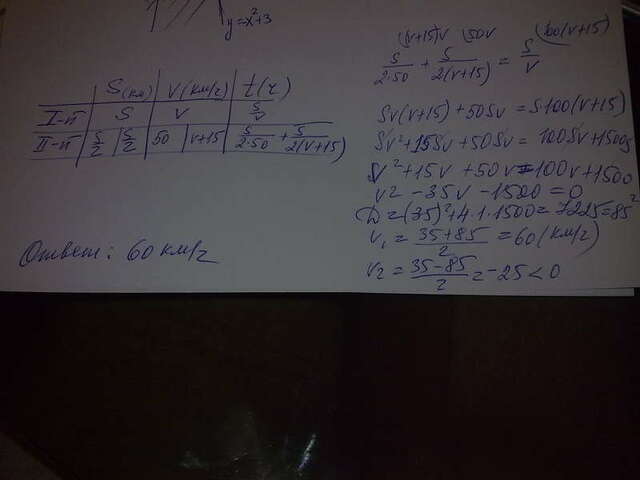 y=x²+3
S(км) V(км/г) t(г)
I-й S V S/V
II-й S/2 S/2 50 V+15 S/2·50 + S/2(V+15)
Ответ: 60 км/г
(V+15)V (50V (100(V+15)
S/2·50 + S/2(V+15) = S/V
SV(V+15)+50SV=S·100(V+15)
SV²+15SV+50SV=100SV+1500S
SV²+15V+50V=100V+1500
V²-35V-1500=0
D=(35)²+4·1·1500=7225=85²
V₁=35+85/2=60(км/г)
V₂=35-85/2=-25<0